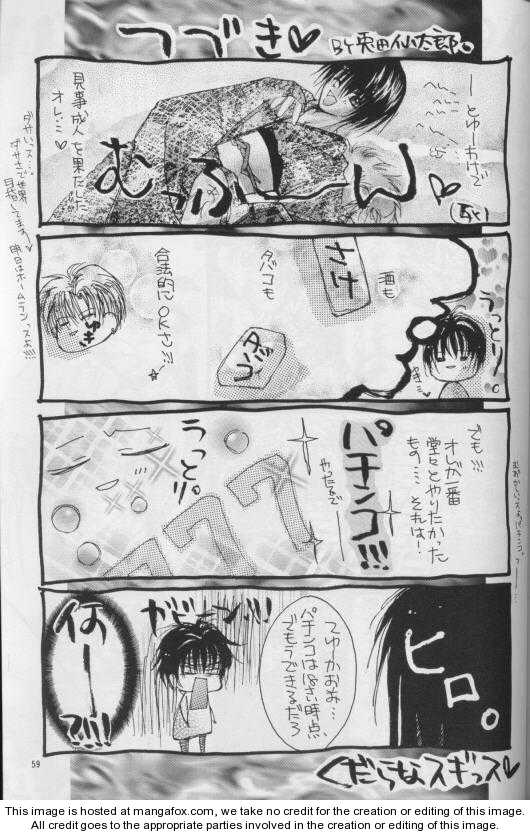 つづき♡
BY 兎田仙太郎。
ーとゆーわけで
(泣)
むっふーん♡
見事成人を果たした
オレ…♡
ダサいっス…
ダサさで世界
目指してます♡
明日はホームランっスよ!!!
うっとり。
酒も
さけ
タバコも
タバコ
合法的にOKさ!!!
ゆき
でも!!!
オレが一番
堂々とやりたかった
もの…それは!
パチンコ!!!
やったるで
777
うっとり。
ヒロ。
てゆかおぉ…
パチンコは18さい時点
でもうできるだろ
ガビーン!!!
何ーっ!!!
くだらなスギっス♡
59
This image is hosted at mangafox.com, we take no credit for the creation or editing of this image.
All credit goes to the appropriate parties involved in the creation or editing of this image.